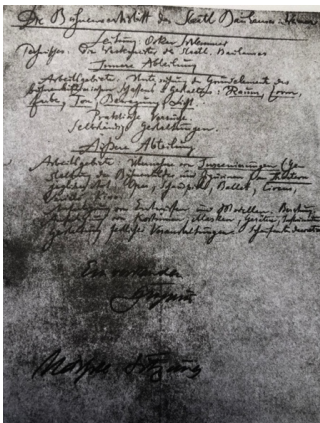 Die Bühnenwerkstatt des Staatl. Bauhauses
Leitung: Oskar Schlemmer
Techniker: Die Werkstätten des Staatl. Bauhauses
Innere Abteilung
Arbeitsgebiete: Untersuchung der Grundelemente des
bühnen Schaffens & Gestaltens: Raum, Form,
Farbe, Ton, Bewegung, Licht.
Praktische Versuche.
Selbständige Gestaltungen.
Äußere Abteilung
Arbeitsgebiete: Übernahme von Inszenierungen (Ge-
staltung des Bühnenbildes und Figurinen) für Theater
jeglicher Art: Oper, Schauspiel, Ballet, Circus,
Varieté, Kino
von Entwürfen und Modellen.
von Kostümen, Masken, Geräten,
Gestaltung festlicher Veranstaltungen.
Einverstanden
Gropius